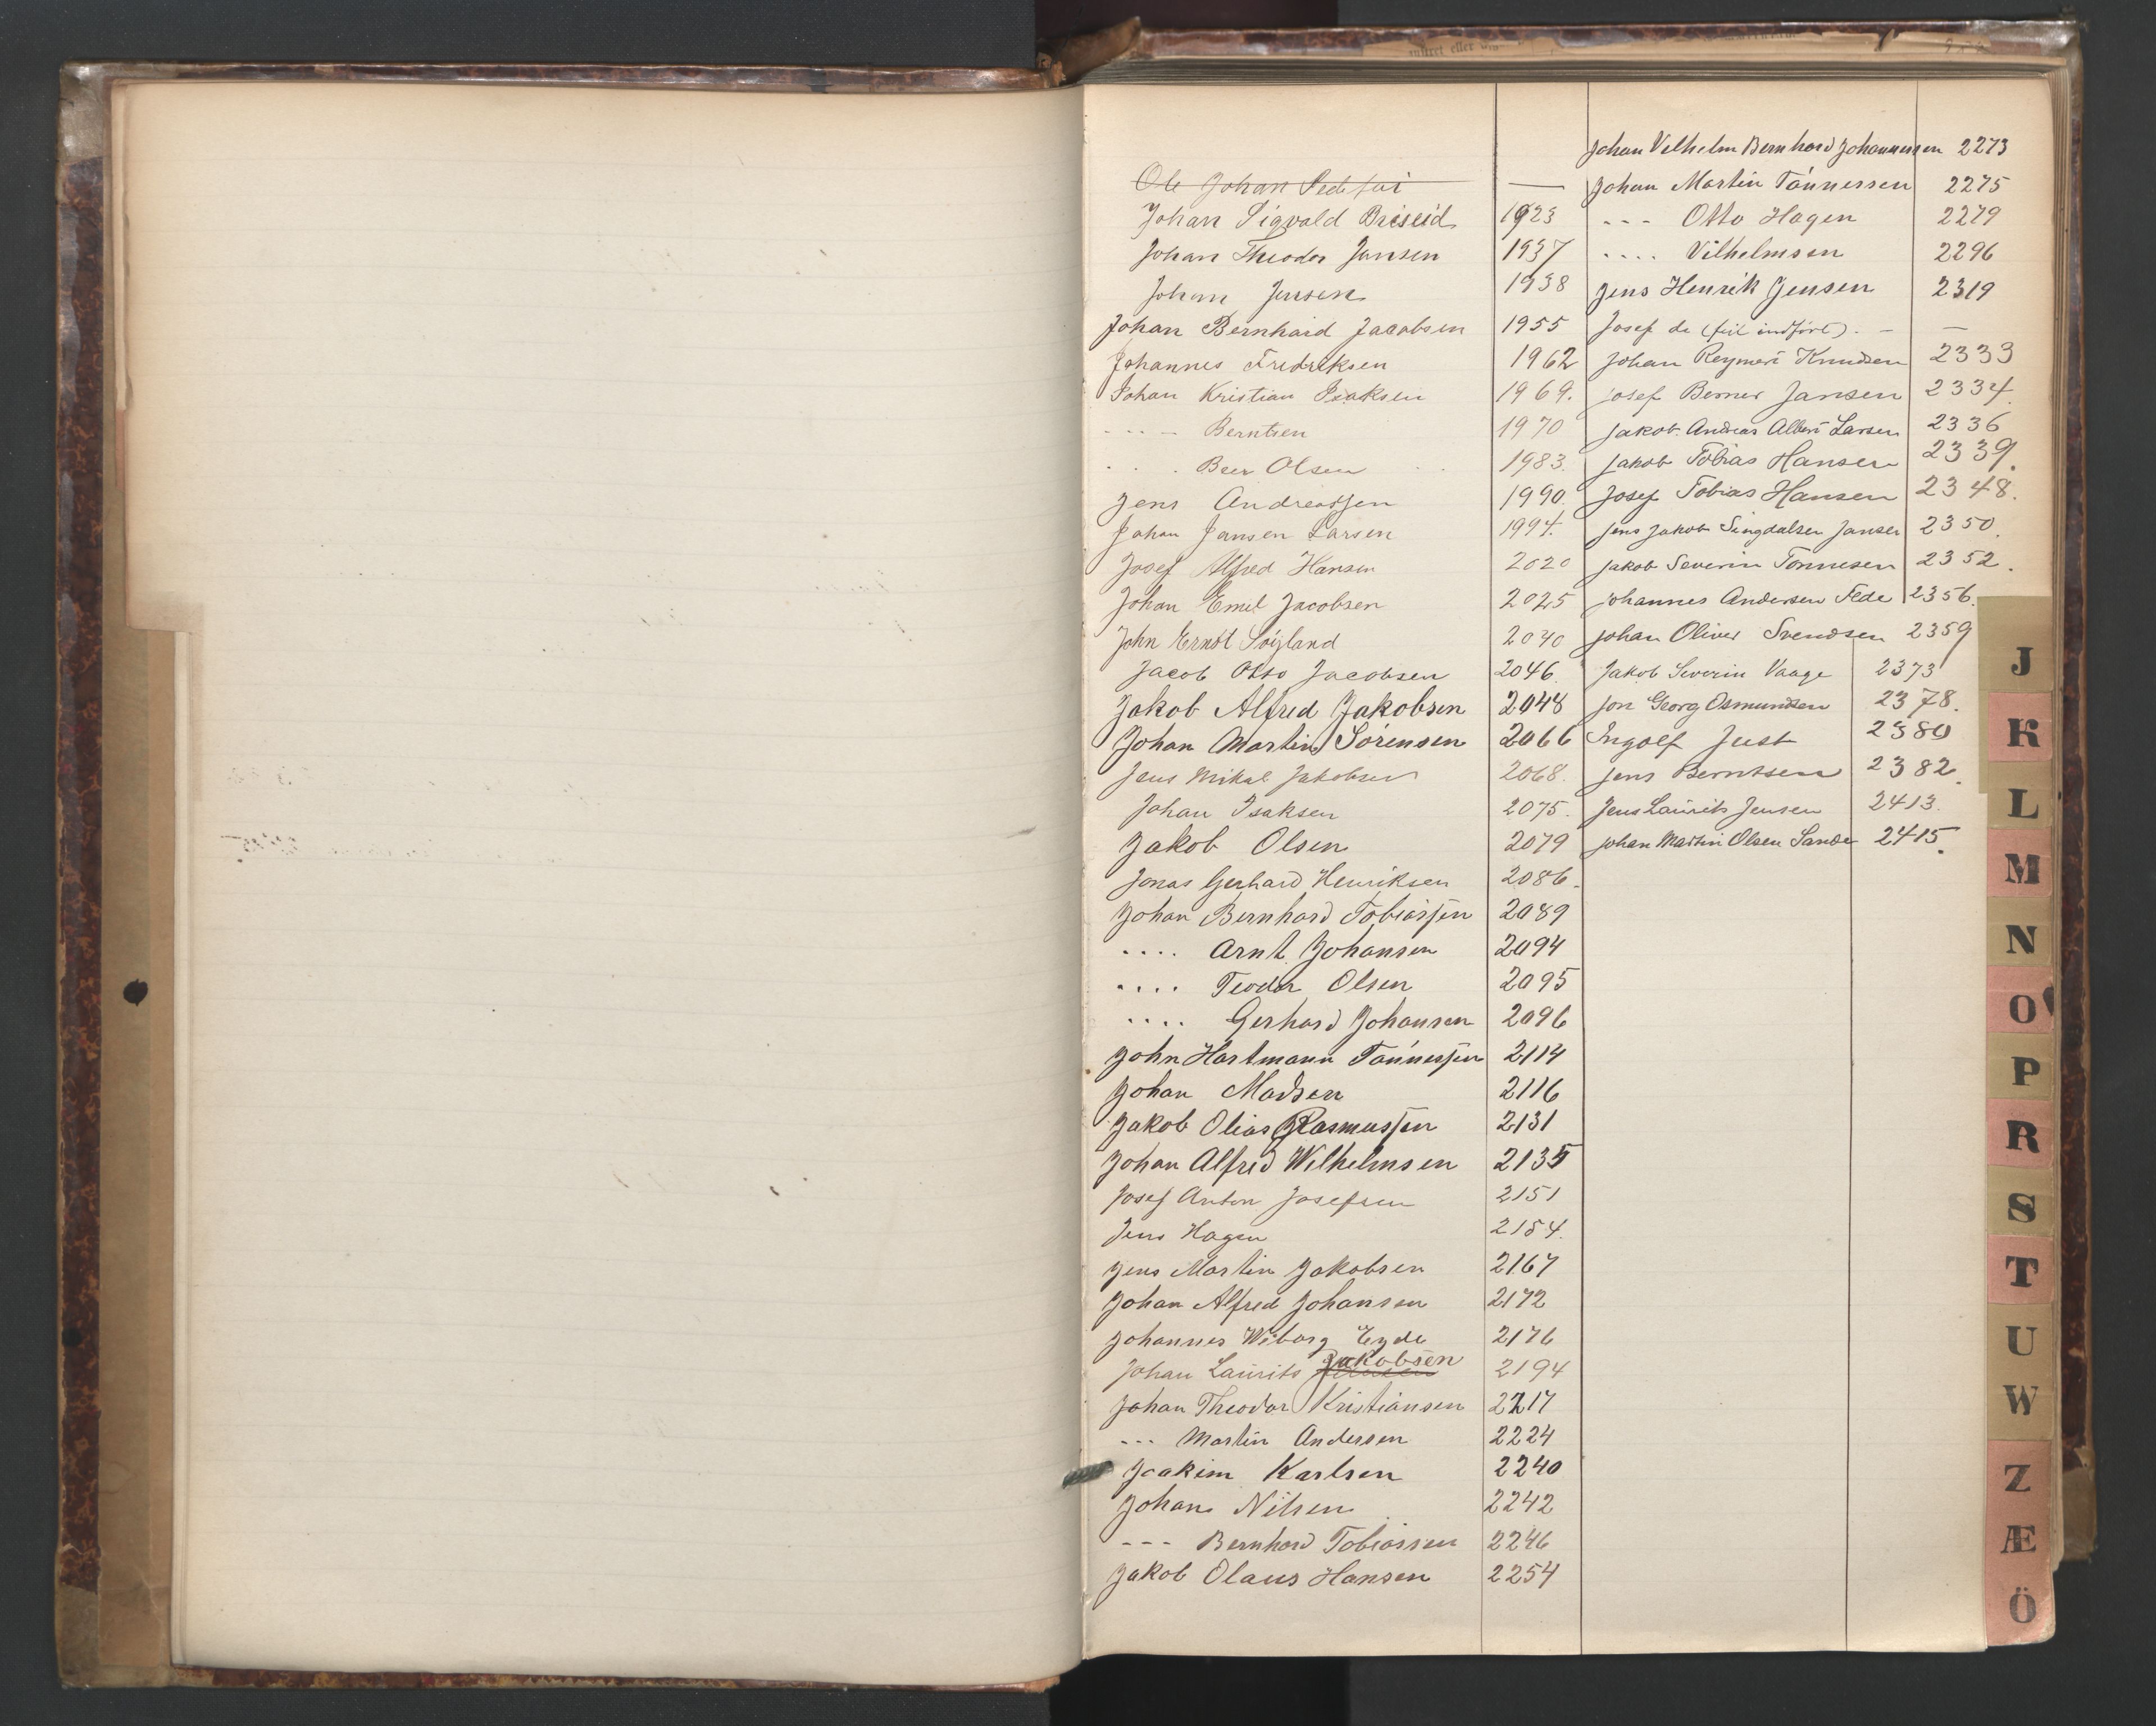 Ole Johan Pedersen —
Johan Sigvald Briseid 1923
Johan Theodor Jansen 1937
Johan Jensen 1938
Johan Bernhard Jacobsen 1955
Johannes Fredriksen 1962
Johan Kristian Isaksen 1969.
---- Berntsen 1970
... Beer Olsen 1983.
Jens Andreassen 1990.
Johan Jansen Larsen 1994.
Josef Alfred Hansen 2020
Johan Emil Jacobsen 2025
John Ernst Söyland 2040
Jacob Otto Jacobsen 2046.
Jakob Alfred Jakobsen 2048
Johan Martin Sörensen 2066
Jens Mikal Jakobsen 2068.
Johan Isaksen 2075.
Jakob Olsen 2079
Jonas Gerhard Henriksen 2086.
Johan Bernhard Tobiassen 2089
.... Arnt Johansen 2094
.... Teodor Olsen 2095
.... Gerhard Johansen 2096
John Hartmann Tönnessen 2114
Johan Madsen 2116
Jakob Olias Rasmussen 2131
Johan Alfred Wilhelmsen 2135
Josef Anton Josefsen 2151
Jens Hagen 2154.
Jens Martin Jakobsen 2167
Johan Alfred Johansen 2172
Johannes Wiborg Eyde 2176
Johan Laurits Jakobsen 2194
Johan Theodor Kristiansen 2217
--- Martin Andersen 2224
Joakim Karlsen 2240
Johan Nilsen 2242
--- Bernhard Tobiassen 2246
Jakob Olaus Hansen 2254
Johan Vilhelm Bernhard Johannessen 2273
Johan Martin Tönnessen 2275
--- Otto Hagen 2279
.... Vilhelmsen 2296
Jens Henrik Jensen 2319
Josef de (feil indfört). — —
Johan Reymert Knudsen 2333
Josef Berner Jansen 2334.
Jakob Andreas Albert Larsen 2336
Jakob Tobias Hansen 2339.
Josef Tobias Hansen 2348.
Jens Jakob Singdalsen Jansen 2350.
Jakob Severin Tönnesen 2352.
Johannes Andersen Fede 2356.
Johan Oliver Svendsen 2359
Jakob Severin Vaage 2373
Jon Georg Osmundsen 2378.
Ingolf Just 2380
Jens Berntsen 2382.
Jens Laurits Jensen 2413.
Johan Martin Olsen Sande 2415.
J
K
L
M
N
O
P
R
S
T
U
W
Z
Æ
Ö